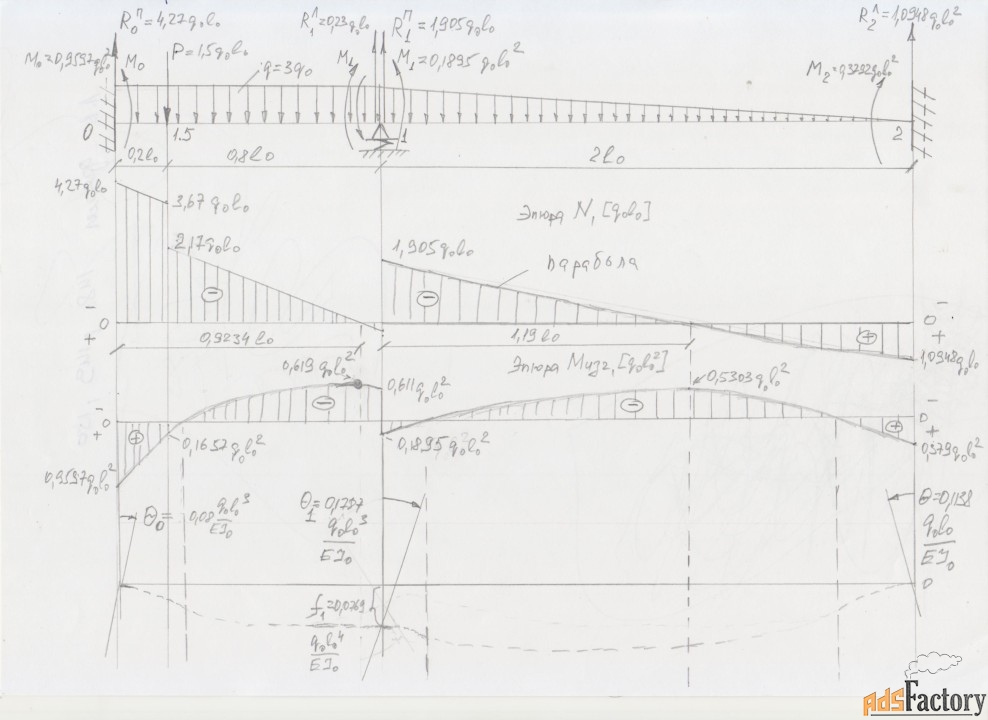 R₀ᴨ=4,27q₀l₀
R₁ᴧ=0,23q₀l₀
R₁ᴨ=1,905q₀l₀
R₂ᴧ=1,0948q₀l₀²
M₀=0,9597q₀l₀²
M₀
P=1,5q₀l₀
q=3q₀
M₁
M₁=0,1895q₀l₀²
M₂=0,3792q₀l₀²
0
1.5
1
2
0,2l₀
0,8l₀
2l₀
4,27q₀l₀
3,67q₀l₀
Эпюра N, [q₀l₀]
2,17q₀l₀
1,905q₀l₀
парабола
−
−
−
−
0
0
+
+
+
0,9234l₀
1,19l₀
1,0948q₀l₀
0,619q₀l₀²
Эпюра Mизг, [q₀l₀²]
0,611q₀l₀²
0,5303q₀l₀²
−
−
−
−
0
0
+
+
+
+
0,1657q₀l₀²
0,1895q₀l₀²
0,379q₀l₀²
0,9597q₀l₀²
θ₀=0,08 q₀l₀³/EJ₀
θ₁=0,1257 q₀l₀³/EJ₀
θ=0,1138 q₀l₀/EJ₀
0
f₁=0,0769 q₀l₀⁴/EJ₀
AdsFactory